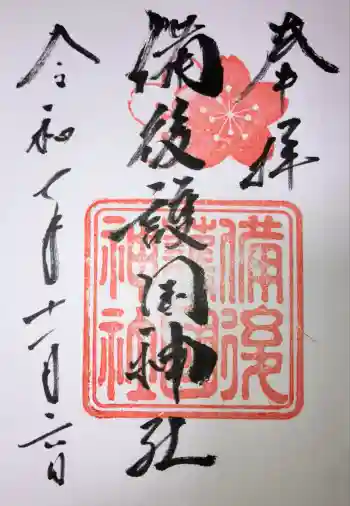 奉拝
備後護国神社
令和七年十一月六日
備後
護国
神社